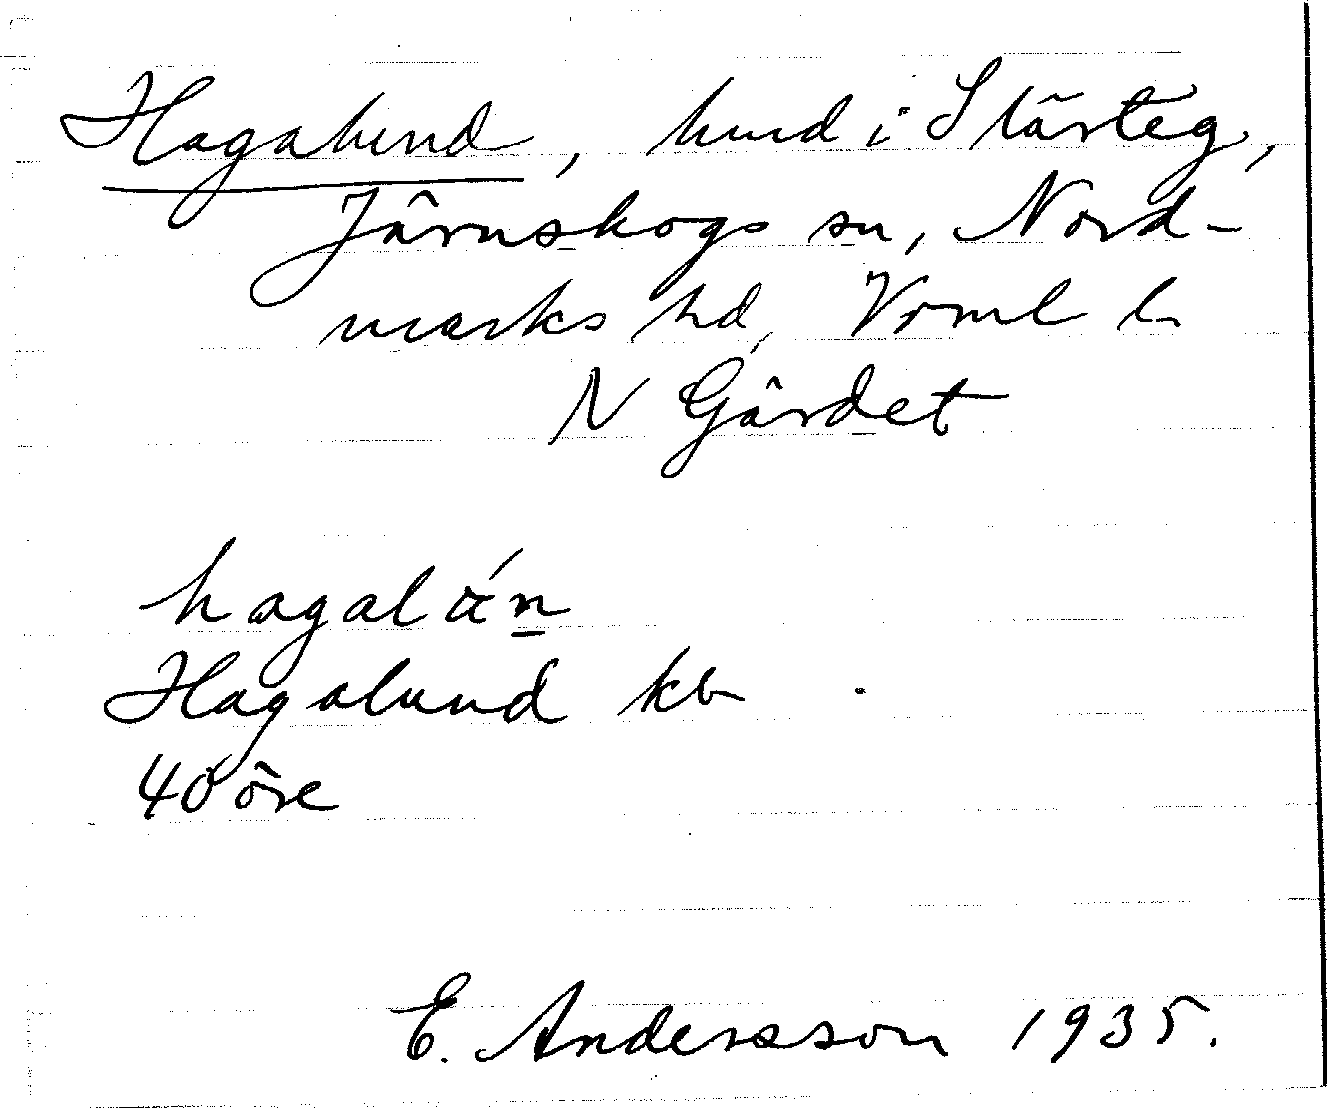 Hagalund, hmd i Slärteg,
Järnskogs sn, Nord-
marks hd, Vrml l.
N Gärdet
hagalán
Hagalund kb
40 öre
E. Andersson 1935.